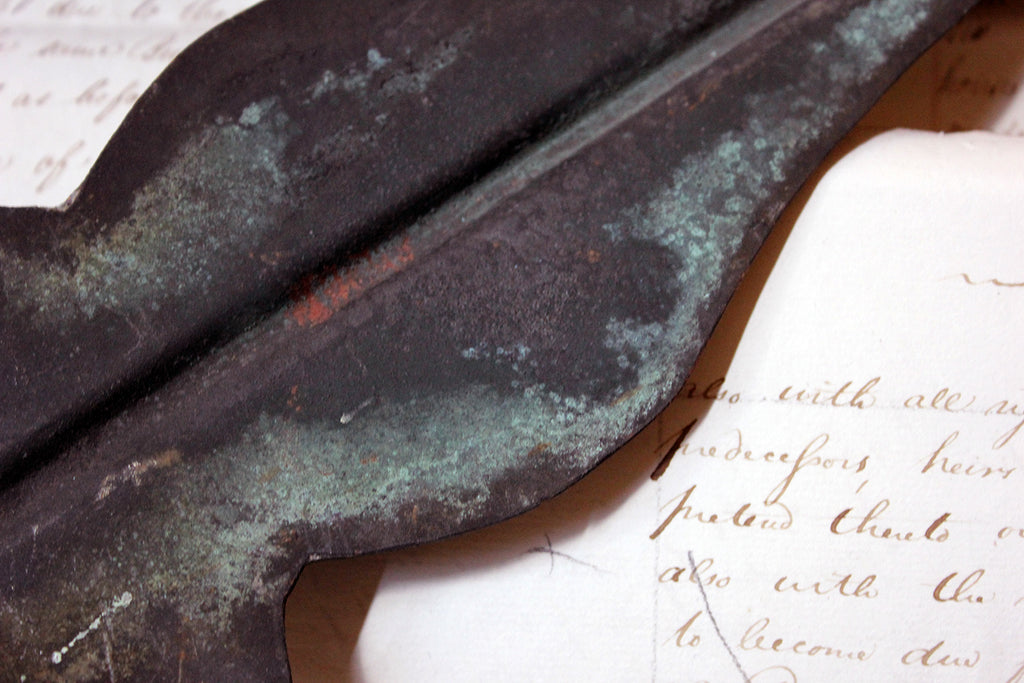 t due to the
same
as hope
of
also with all
predeceſsors, heirs
pretend thereto or
also with the
to become due